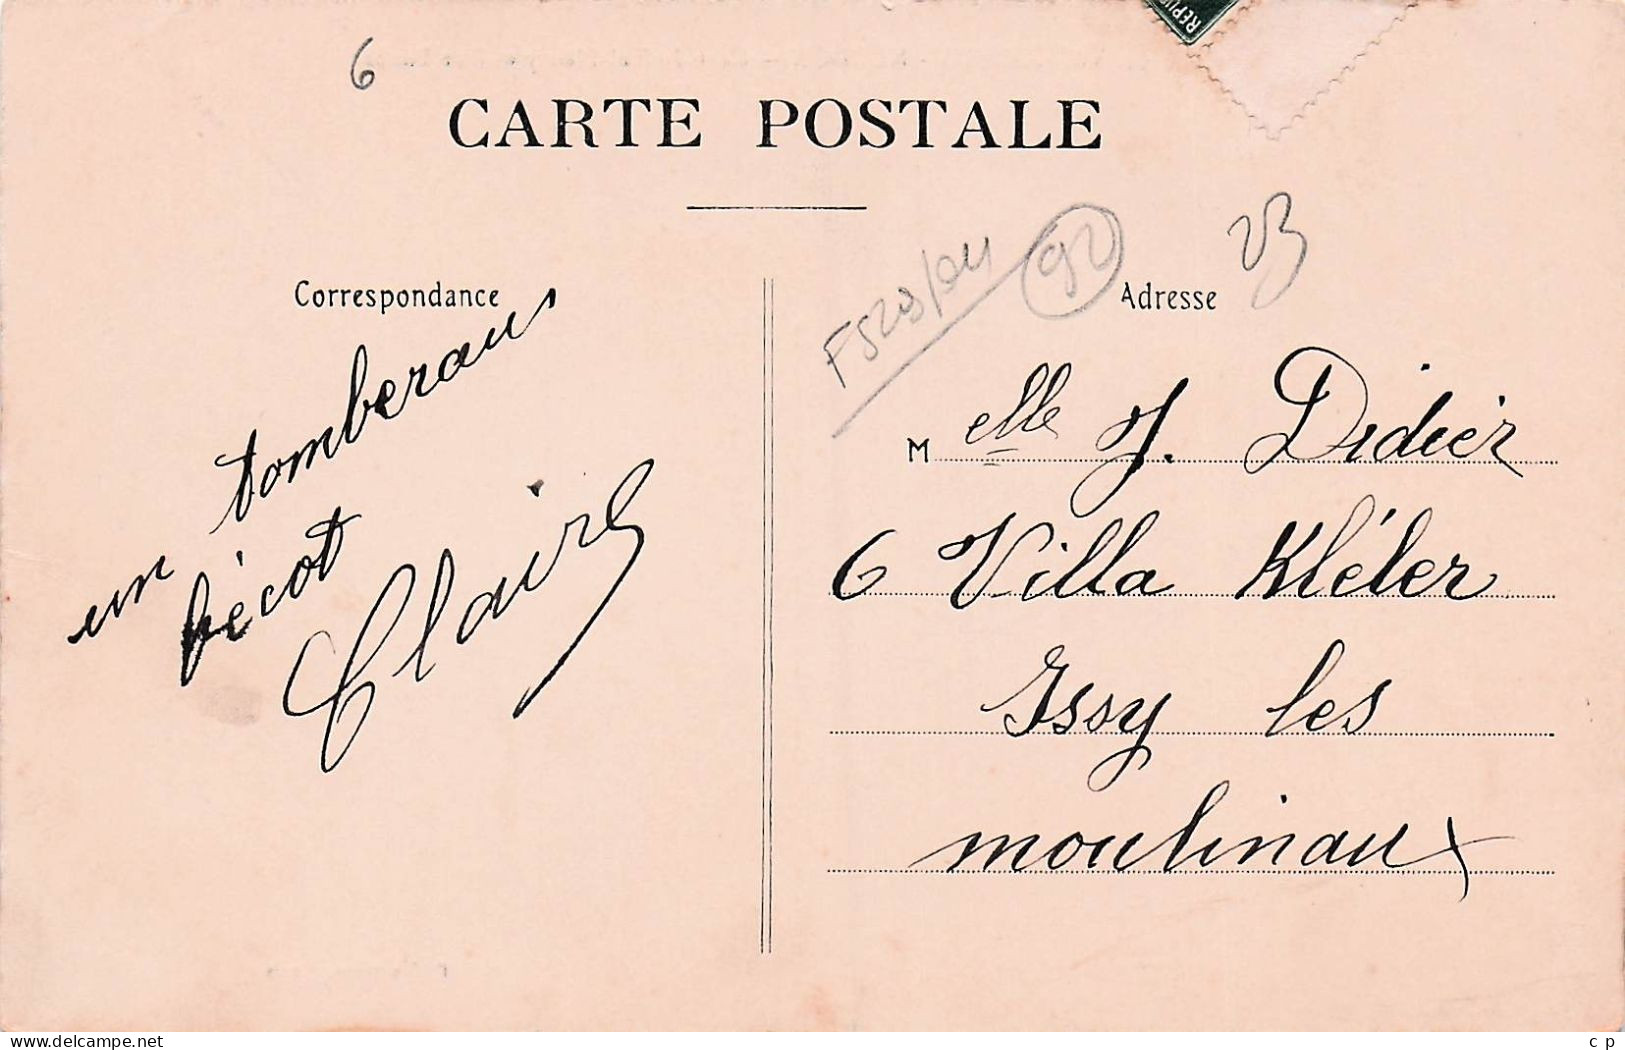 REPU
6
CARTE POSTALE
Correspondance
tomberaus
un bécot
Claire
92
23
Adresse
Melle J. Didier
6 Villa Kléber
Issy les
moulinaux
www.delcampe.net
c p